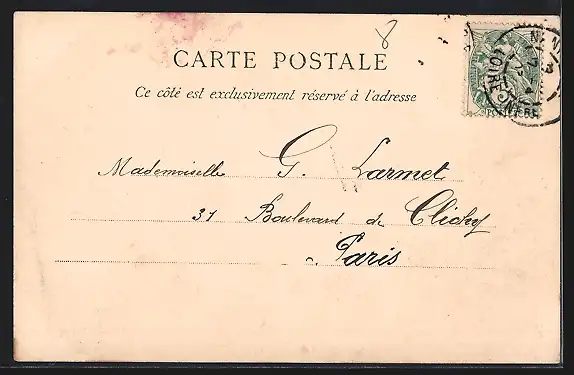 8
CARTE POSTALE
Ce côté est exclusivement réservé à l'adresse
Mademoiselle G. Larmet
31 Boulevard de Clichy
Paris
LOIRE